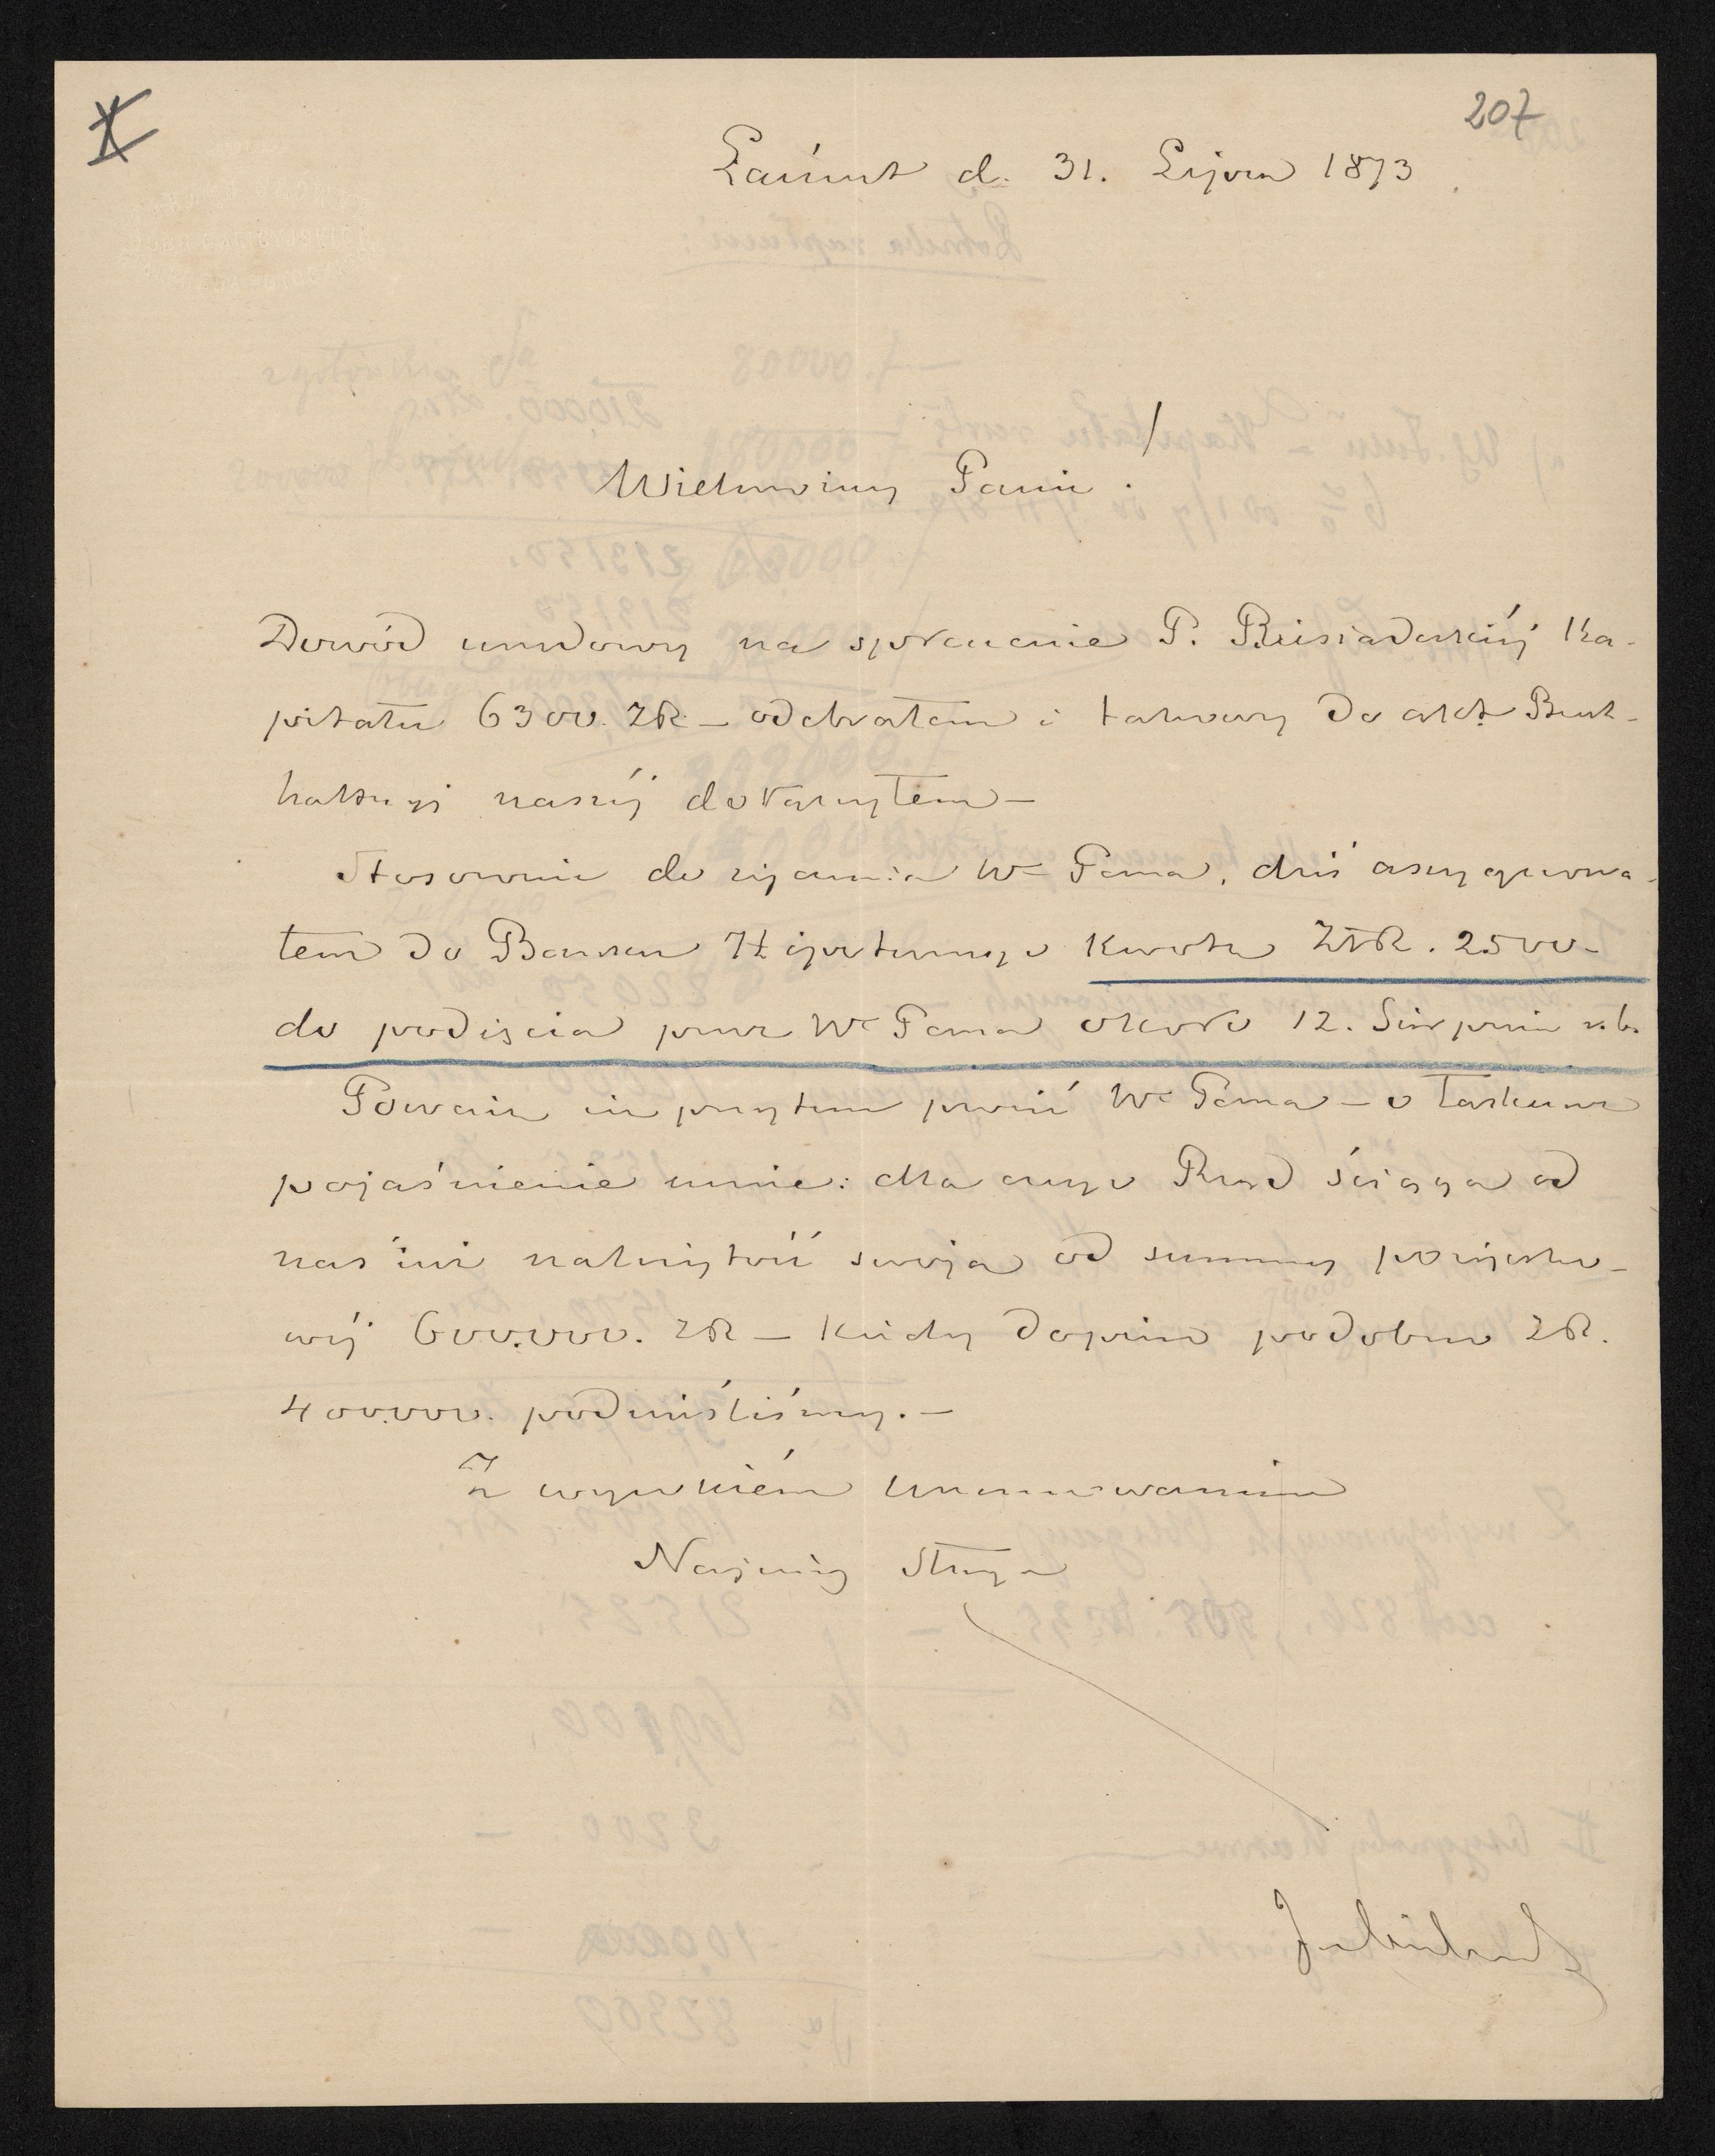 207
Łańcut d. 31. Lipca 1873
Wielmożny Panie!
Dowód urzędowy na spłacenie P. Ka-
pitału 6300. ZR – odebrałem i takowy do akt Buch-
halteryi naszéj dołączyłem –
Stosownie do życzenia W Pana, dziś asygnowa-
łem do Banku Hipotecznego kwotę ZłR. 2500 –
do podjęcia przez W Pana około 12. Sierpnia r.b.
Poważam się przytem prosić W Pana – o łaskawe
pojaśnienie mnie: dla czego Rząd ściąga od
nas już należytość swoją od summy pożyczko-
wéj 600.000. ZR – kiedy dopiero podobno ZR.
400.000. podnieśliśmy. –
Z wysokiém uszanowaniem
Najniższy Sługa